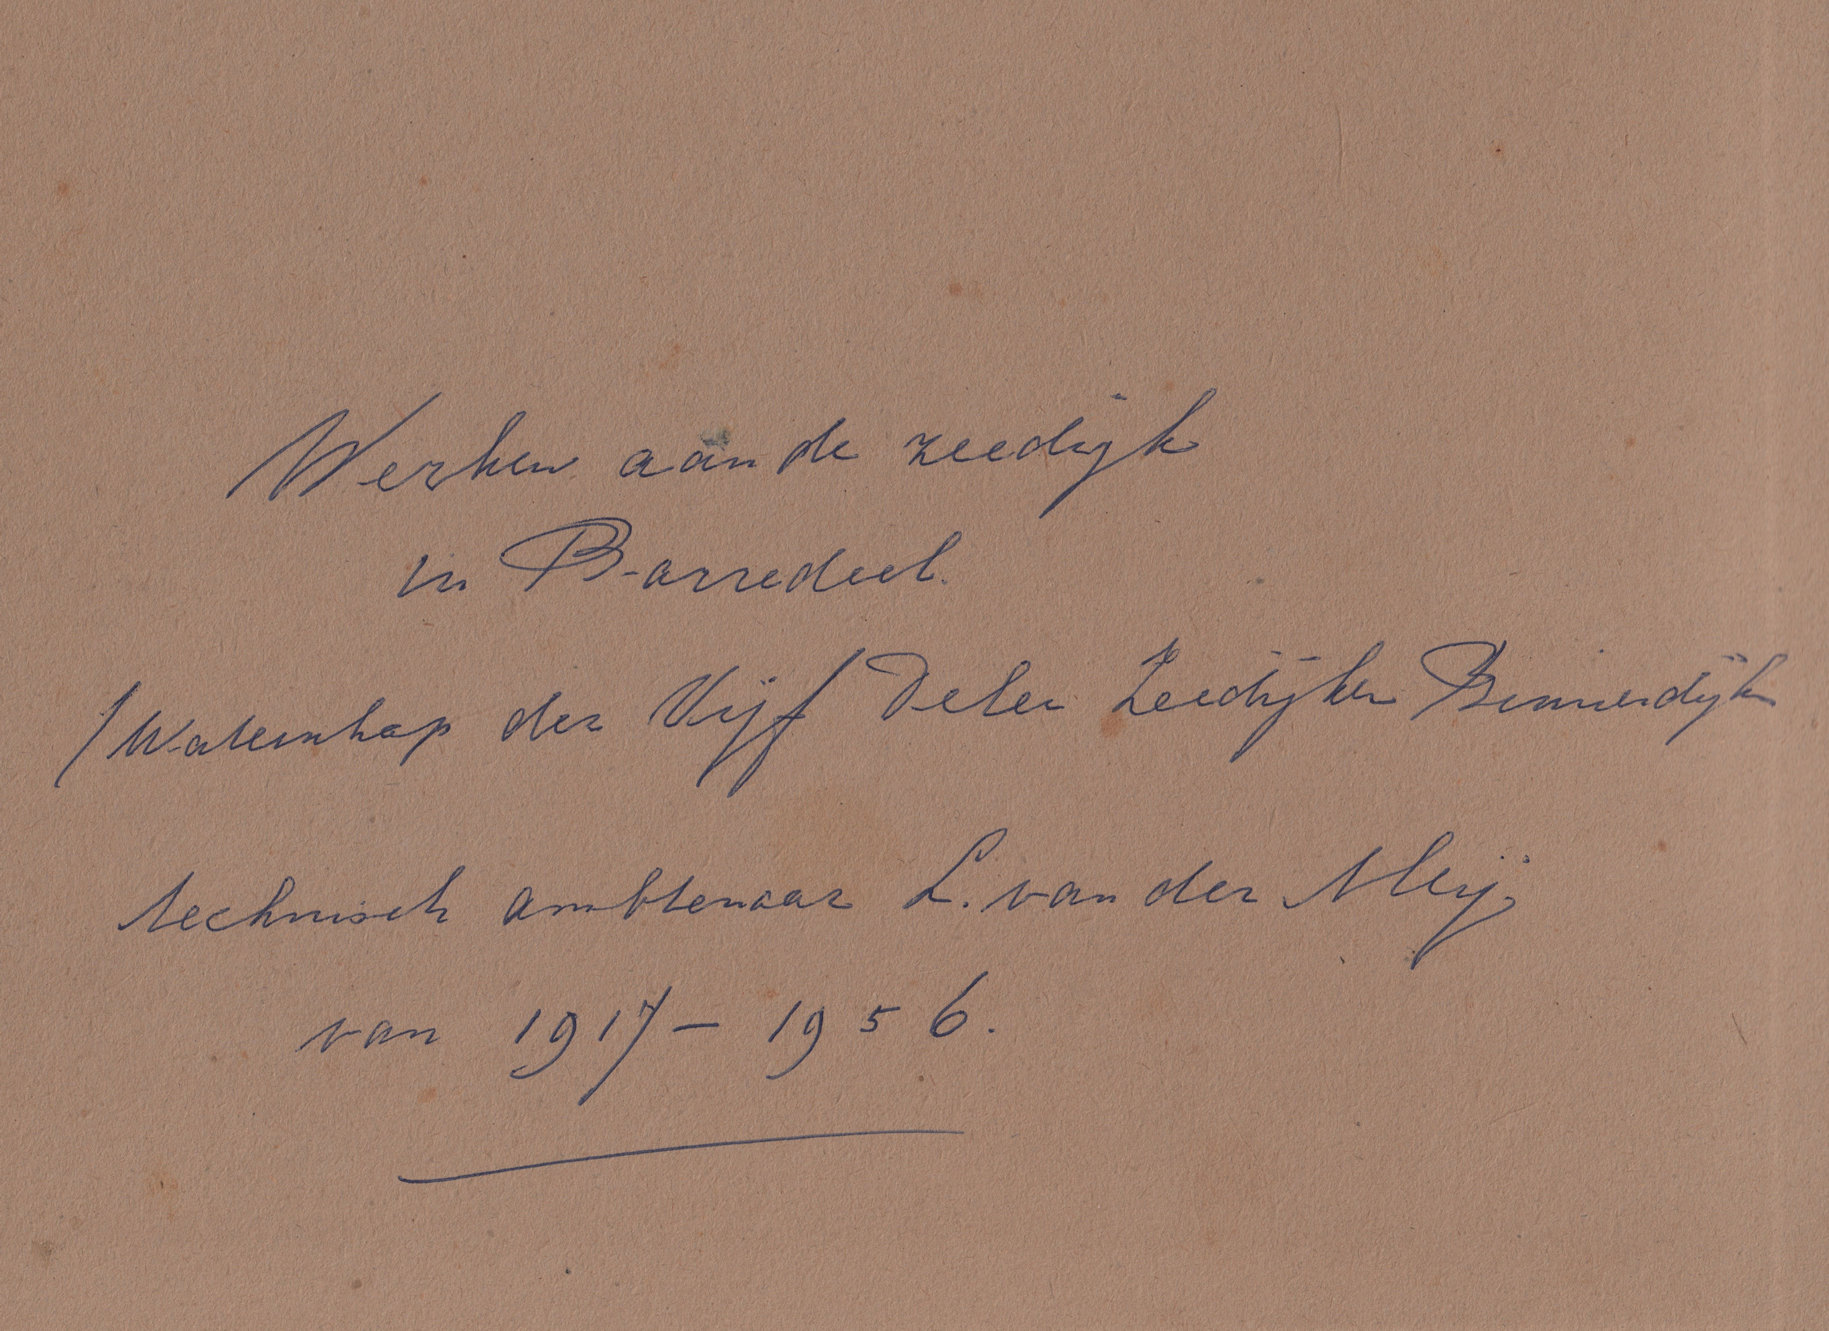 Werken aan de zeedijk
in Barradeel.
/Waterschap der Vijf Delen Zeedijken Binnendijk
technisch ambtenaar L. van der Meij,
van 1917 - 1956.